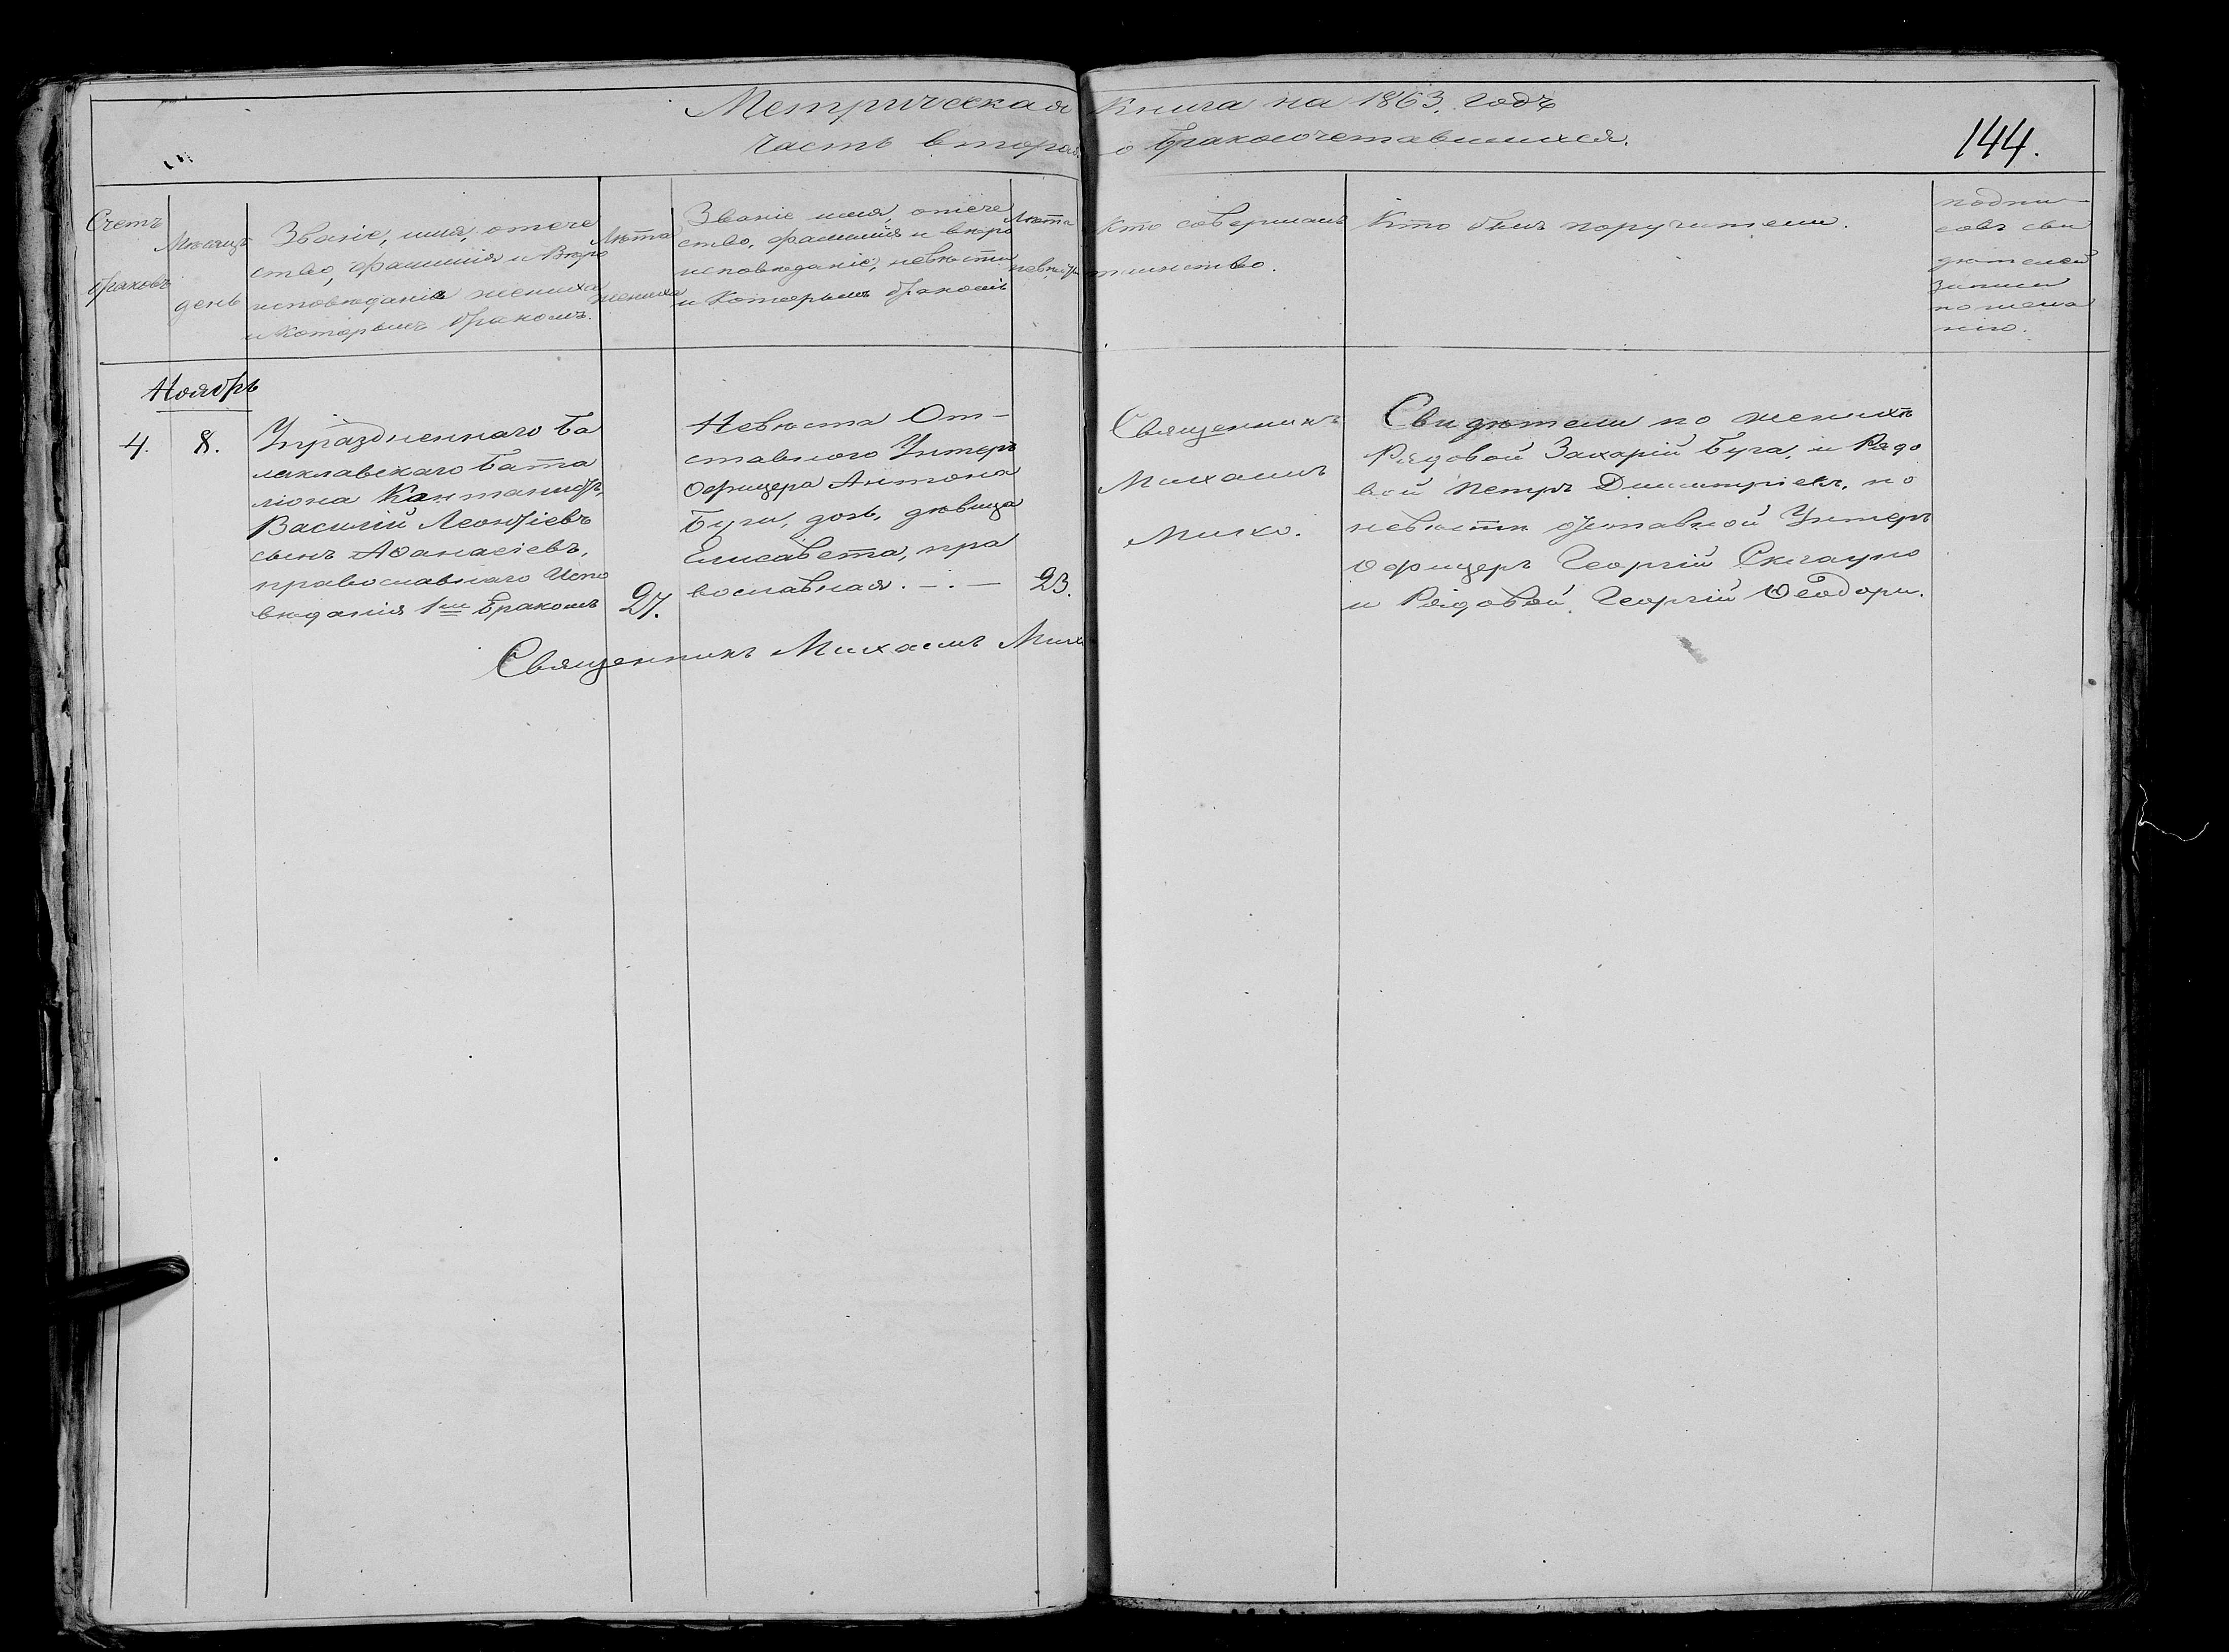 Метрическая Книга на 1863. годъ
часть вторая о бракосочетавшихся.
144.
Счетъ браковъ
Мѣсяцъ день
Званіе, имя, отече
ство, фамилія и вѣро
исповѣданіе жениха
и которымъ бракомъ.
Лѣта
жениха
Званіе имя, отече
ство, фамилия и вѣро
исповѣданіе, невѣсты
и которымъ бракомъ
Лѣта
невѣсты
Кто совершалъ
таинство.
Кто былъ поручители.
подпи-
сь сви
дѣтелей
записи
по жела
нію.
Ноябрь
4.
8.
Упраздненнаго Ба
лаклавскаго Бата
ліона Кантонистъ,
Василій Леонтіевъ
сынъ Аѳанасіевъ,
православнаго Испо
вѣданія 1мъ Бракомъ
27.
Невѣста От-
ставного Унтеръ
Офицера Антона
Буги, дочь, дѣвица
Елисавета, пра
вославная. -.-
23.
Священникъ
Михаилъ
Михо.
Свидѣтели по женихѣ
Рядовой Захарій Буга, и Рядо
вой Петръ Димитріевъ, по
невѣстѣ отставной Унтеръ
Офицеръ Георгій
и Рядовой, Георгій Ѳеодори.
Священникъ Михаилъ Михо